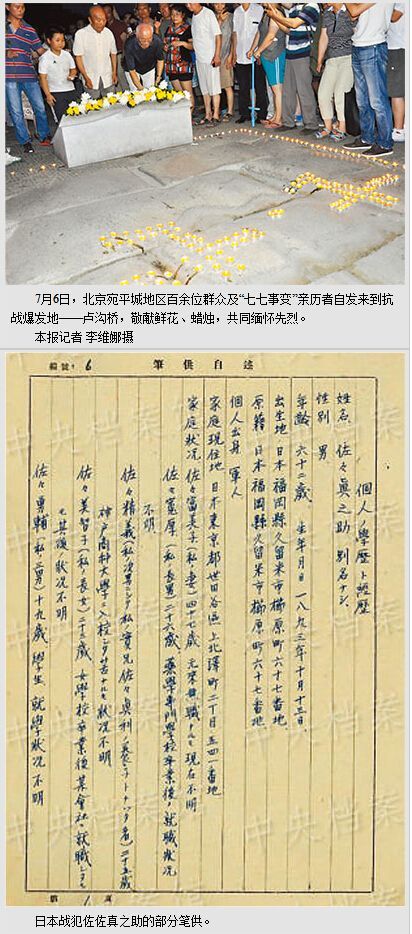 7月6日，北京宛平城地区百余位群众及“七七事变”亲历者自发来到抗
战爆发地——卢沟桥，敬献鲜花、蜡烛，共同缅怀先烈。
本报记者 李维娜摄
編號: 6
筆供自述
個人ノ學歴ト經歴
姓名 佐々真之助 別名ナシ
性別 男
年齢 六十二歳 生年月日 一八九三年十月十三日
出生地 日本福岡縣久留米市櫛原町六十七番地
原籍 日本福岡縣久留米市櫛原町六十七番地
個人出身 軍人
家庭現住地 日本東京都世田谷區上北澤町二丁目五四一番地
家庭状况 佐々富美子(私ノ妻)四十七歳 元來無職ナルモ現在不明
佐々寬厚(私ノ長男)二十六歳 藥學専門學校卒業後ノ就職状况
不明
佐々精義(私ノ次男ニシテ私ノ實兄佐々 利ノ養子トナッタ者)二十五歳
神戸商科大學ニ入校シタ筈ナルモ状况不明
佐々美智子(私ノ長女)二十三歳 女學校卒業後某會社ニ就職シタル
モ其後ノ状况不明
佐々勇輔(私ノ三男)十九歳 學生 就學状况不明
中央档案
日本战犯佐佐真之助的部分笔供。